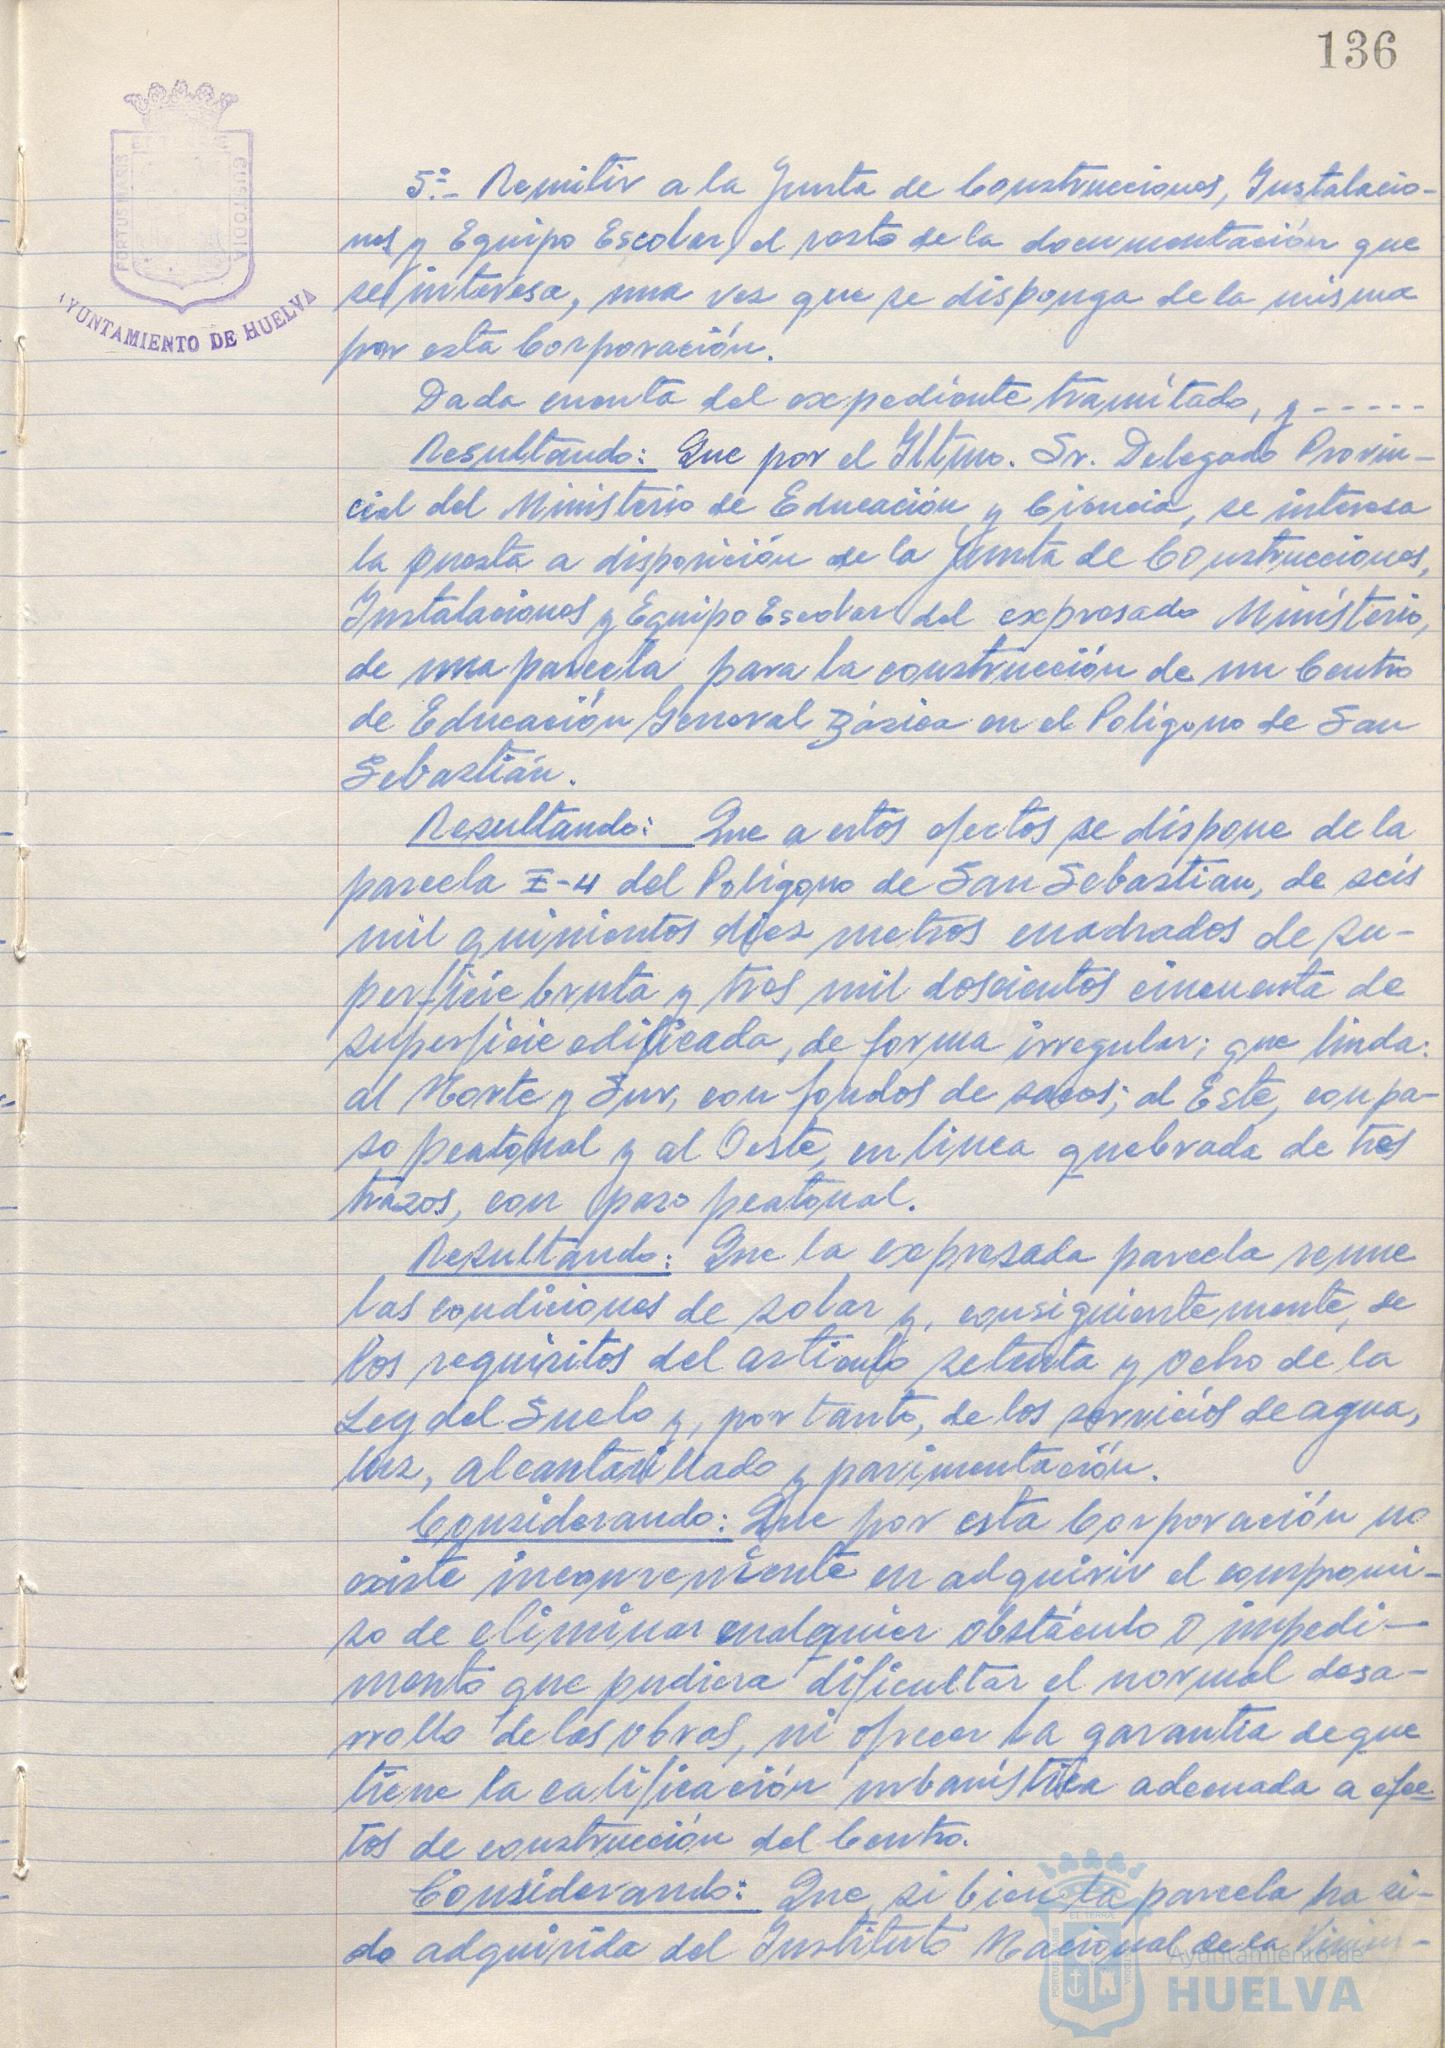 136
PORTUS MARIS
CUSTODIA
AYUNTAMIENTO DE HUELVA
5º.- Remitir a la Junta de Construcciones, Instalacio-
nes y Equipo Escolar, el resto de la documentación que
se interesa, una vez que se disponga de la misma
por esta Corporación.
Dada cuenta del expediente tramitado, y -----
Resultando: Que por el Iltmo. Sr. Delegado Provin-
cial del Ministerio de Educación y Ciencia, se interesa
la puesta a disposición de la Junta de Construcciones,
Instalaciones y Equipo Escolar del expresado Ministerio,
de una parcela para la construcción de un Centro
de Educación General Básica en el Polígono de San
Sebastián.
Resultando: Que a estos efectos se dispone de la
parcela E-4 del Polígono de San Sebastian, de seis
mil quinientos diez metros cuadrados de su-
perficie bruta y tres mil doscientos cincuenta de
superficie edificada, de forma irregular; que linda:
al Norte y Sur, con fondos de sacos; al Este, con pa-
so peatonal y al Oeste, en linea quebrada de tres
trazos, con paso peatonal.
Resultando: Que la expresada parcela reune
las condiciones de solar y, consiguientemente, de
los requisitos del articulo setenta y ocho de la
Ley del Suelo y, por tanto, de los servicios de agua,
luz, alcantarillado y pavimentación.
Considerando: Que por esta Corporación no
existe inconveniente en adquirir el compromi-
so de eliminar cualquier obstáculo o impedi-
mento que pudiera dificultar el normal desa-
rrollo de las obras, ni ofrecer la garantia de que
tiene la calificación urbanística adecuada a efec-
tos de construcción del Centro.
Considerando: Que si bien la parcela ha si-
do adquirida del Instituto Nacional de la Vivien-
Ayuntamiento de
HUELVA